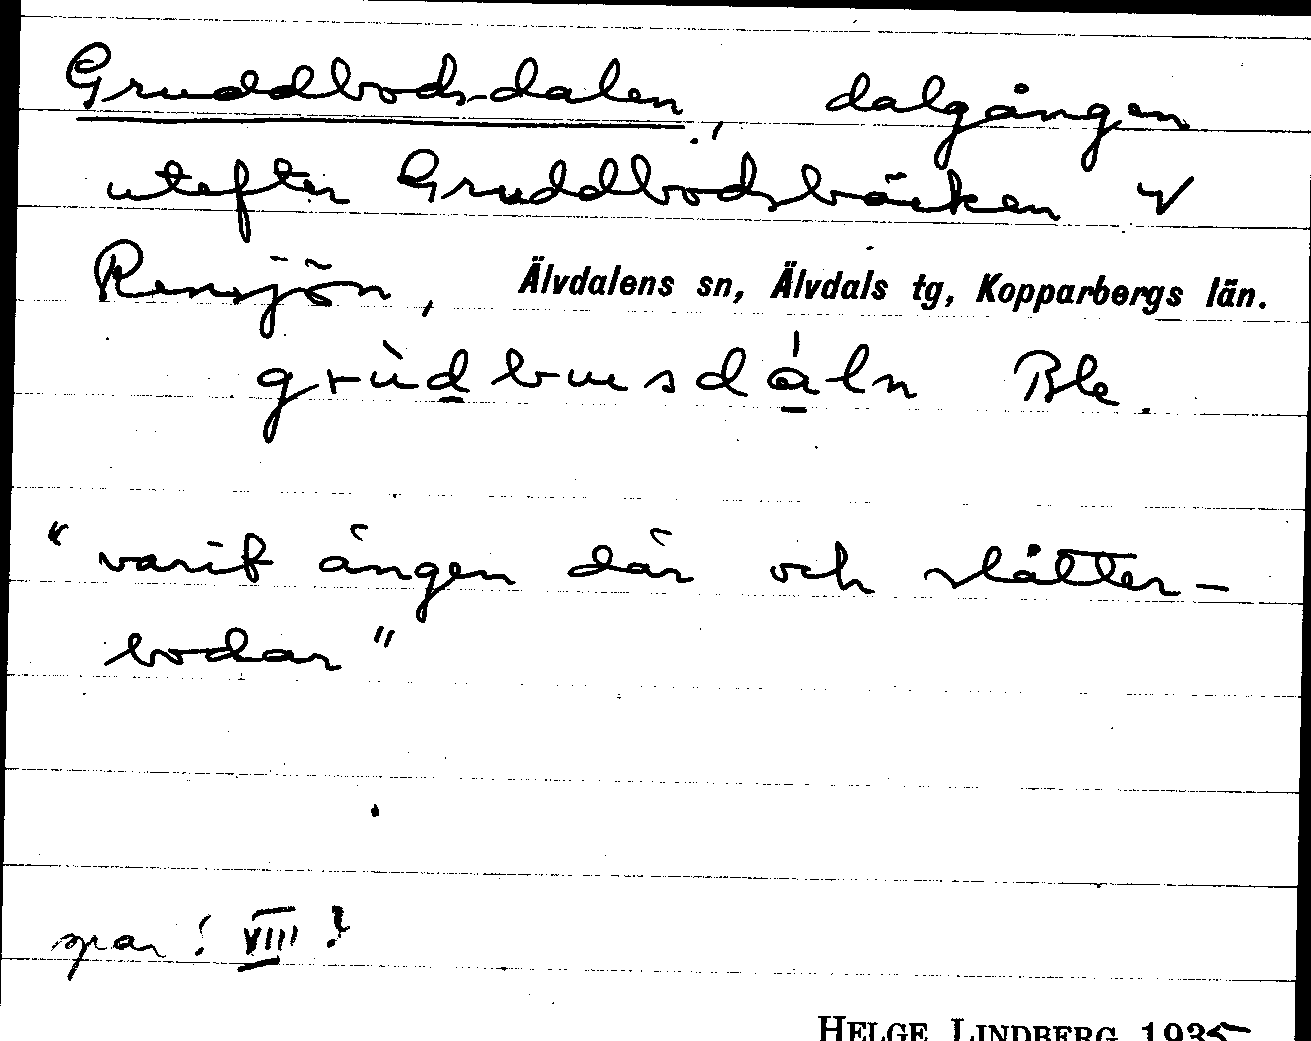 Gruddbodsdalen, dalgången
utefter Gruddbodsbäcken V
Rensjön, Älvdalens sn, Älvdals tg, Kopparbergs län.
grùdbusdáln Ble.
"varit ängen där och slåtter-
bodar"
spar! VIII?
HELGE LINDBERG 1935